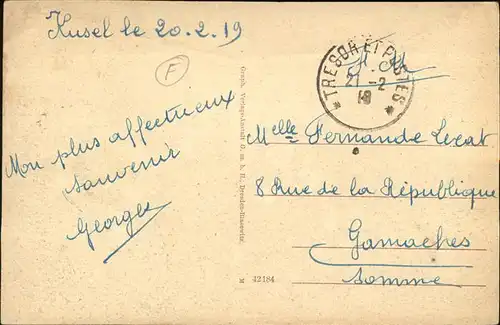 Kusel le 20-2-19
F
Mon plus affectueux
souvenir
Georges
Graph. Verlags-Anstalt G. m. b. H., Dresden-Blasewitz.
M 42184
* TRESOR ET POSTES *
F. M.
21 -2
Melle Fernande Lecat
8 Rue de la République
Gamaches
Somme